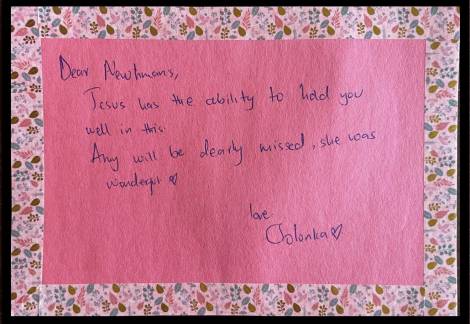 Dear Newhmans,
Jesus has the ability to hold you
well in this.
Amy will be dearly missed, she was
wonderful ♡
love
Jolonka ♡